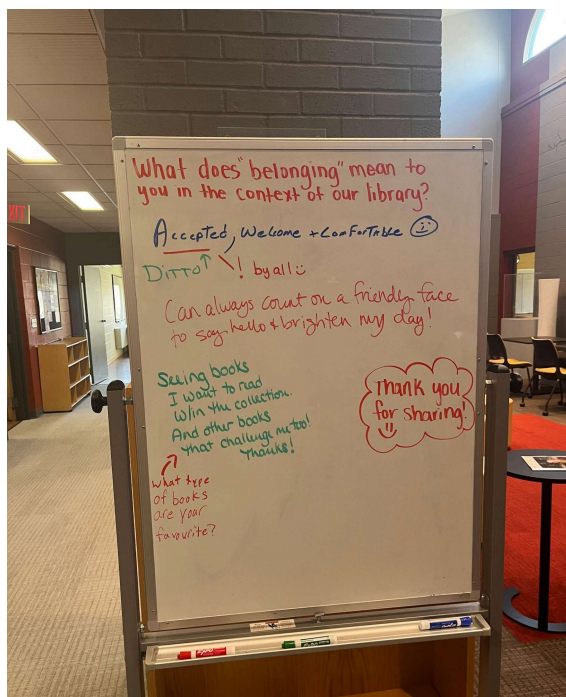 What does "belonging" mean to
you in the context of our library?
Accepted, Welcome + Comfortable
Ditto
! by all
Can always count on a friendly face
to say hello & brighten my day!
Seeing books
I want to read
w/in the collection.
And other books
that challenge me too!
Thanks!
Thank you
for sharing!
What type
of books
are your
favourite?
EXIT